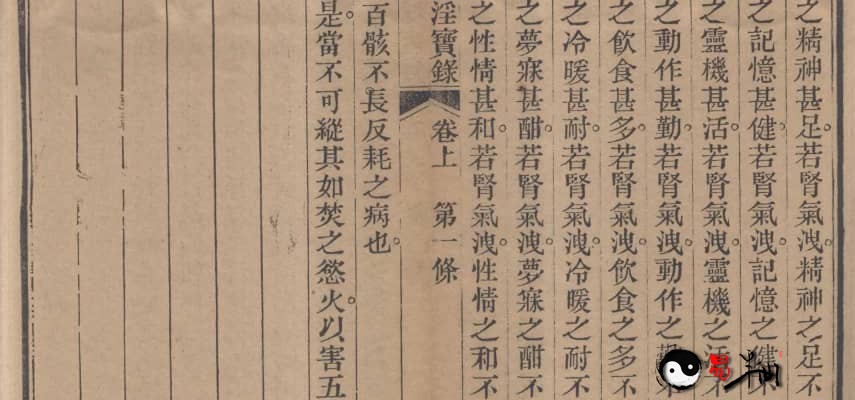 之精神甚足。若腎氣洩。精神之足不
之記憶甚健。若腎氣洩。記憶之健不
之靈機甚活。若腎氣洩。靈機之活不
之動作甚勤。若腎氣洩。動作之勤不
之飲食甚多。若腎氣洩。飲食之多不
之冷暖甚耐。若腎氣洩。冷暖之耐不
之夢寐甚酣。若腎氣洩。夢寐之酣不
之性情甚和。若腎氣洩。性情之和不
淫寶錄 卷上 第一條
百骸不長反耗之病也。
是。當不可縱其如焚之慾火。以害五